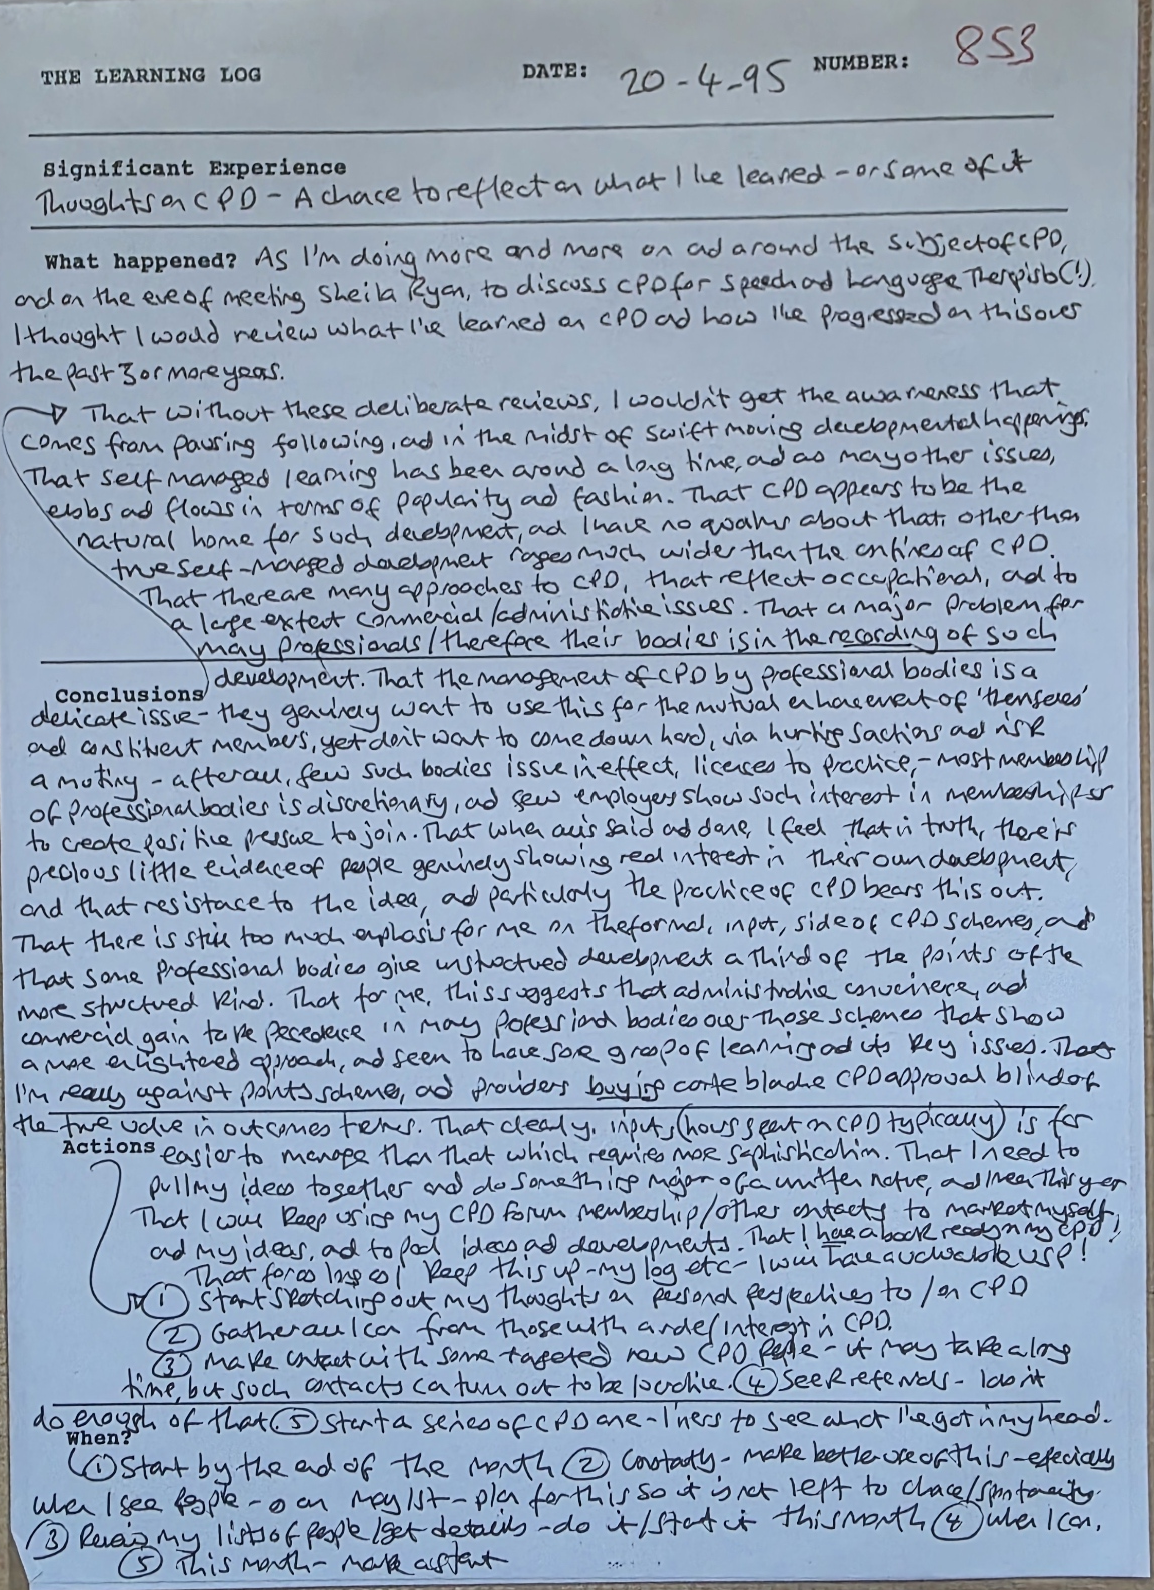 THE LEARNING LOG DATE: 20-4-95 NUMBER: 853
Significant Experience
Thoughts on CPD - A chance to reflect on what I've learned - or some of it
What happened? As I'm doing more and more on and around the subject of CPD,
and on the eve of meeting Sheila Ryan, to discuss CPD for Speech and Language Therapists(!).
I thought I would review what I've learned on CPD and how I've progressed on this over
the past 3 or more years.
That without these deliberate reviews, I wouldn't get the awareness that
comes from pausing following, and in the midst of swift moving developmental happenings.
That self managed learning has been around a long time, and as many other issues,
ebbs and flows in terms of popularity and fashion. That CPD appears to be the
natural home for such development, and I have no qualms about that, other than
true self-managed development ranges much wider than the confines of CPD.
That there are many approaches to CPD, that reflect occupational, and to
a large extent commercial/administrative issues. That a major problem for
many professionals/therefore their bodies is in the recording of such
development. That the management of CPD by professional bodies is a
Conclusions
delicate issue - they genuinely want to use this for the mutual enhancement of 'themselves'
and constituent members, yet don't want to come down hard, via hurting sanctions and risk
a mutiny - after all, few such bodies issue in effect, licences to practice, - most membership
of professional bodies is discretionary, and few employers show such interest in membership or
to create positive pressure to join. That when all is said and done, I feel that in truth, there is
precious little evidence of people genuinely showing real interest in their own development,
and that resistance to the idea, and particularly the practice of CPD bears this out.
That there is still too much emphasis for me on the formal, input, side of CPD schemes, and
that some professional bodies give unstructured development a third of the points of the
more structured kind. That for me, this suggests that administrative convenience, and
commercial gain take precedence in many professional bodies over those schemes that show
a more enlightened approach, and seem to have some grasp of learning and its key issues. That
I'm really against points schemes, and providers buying carte blache CPD approval blind of
the true value in outcomes terms. That clearly, inputs (hours spent on CPD typically) is far
Actions easier to manage than that which requires more sophistication. That I need to
pull my ideas together and do something major of a written nature, and I mean this year
That I will keep using my CPD forum membership/other contacts to market myself,
and my ideas, and to pool ideas and developments. That I have a book ready in my CPD!
That for as long as I keep this up - my log etc - I will have a valuable USP!
① Start sketching out my thoughts on personal perspectives to/on CPD
② Gather all I can from those with a role/interest in CPD.
③ Make contact with some targeted new CPD people - it may take a long
time, but such contacts can turn out to be lucrative. ④ Seek referrals - I don't
do enough of that ⑤ Start a series of CPD one-liners to see what I've got in my head.
When?
① Start by the end of the month ② Constantly - make better use of this - especially
when I see people - plan for this so it is not left to chance/spontaneity.
③ Review my lists of people/get details - do it/start it this month ④ When I can.
⑤ This month - make a start